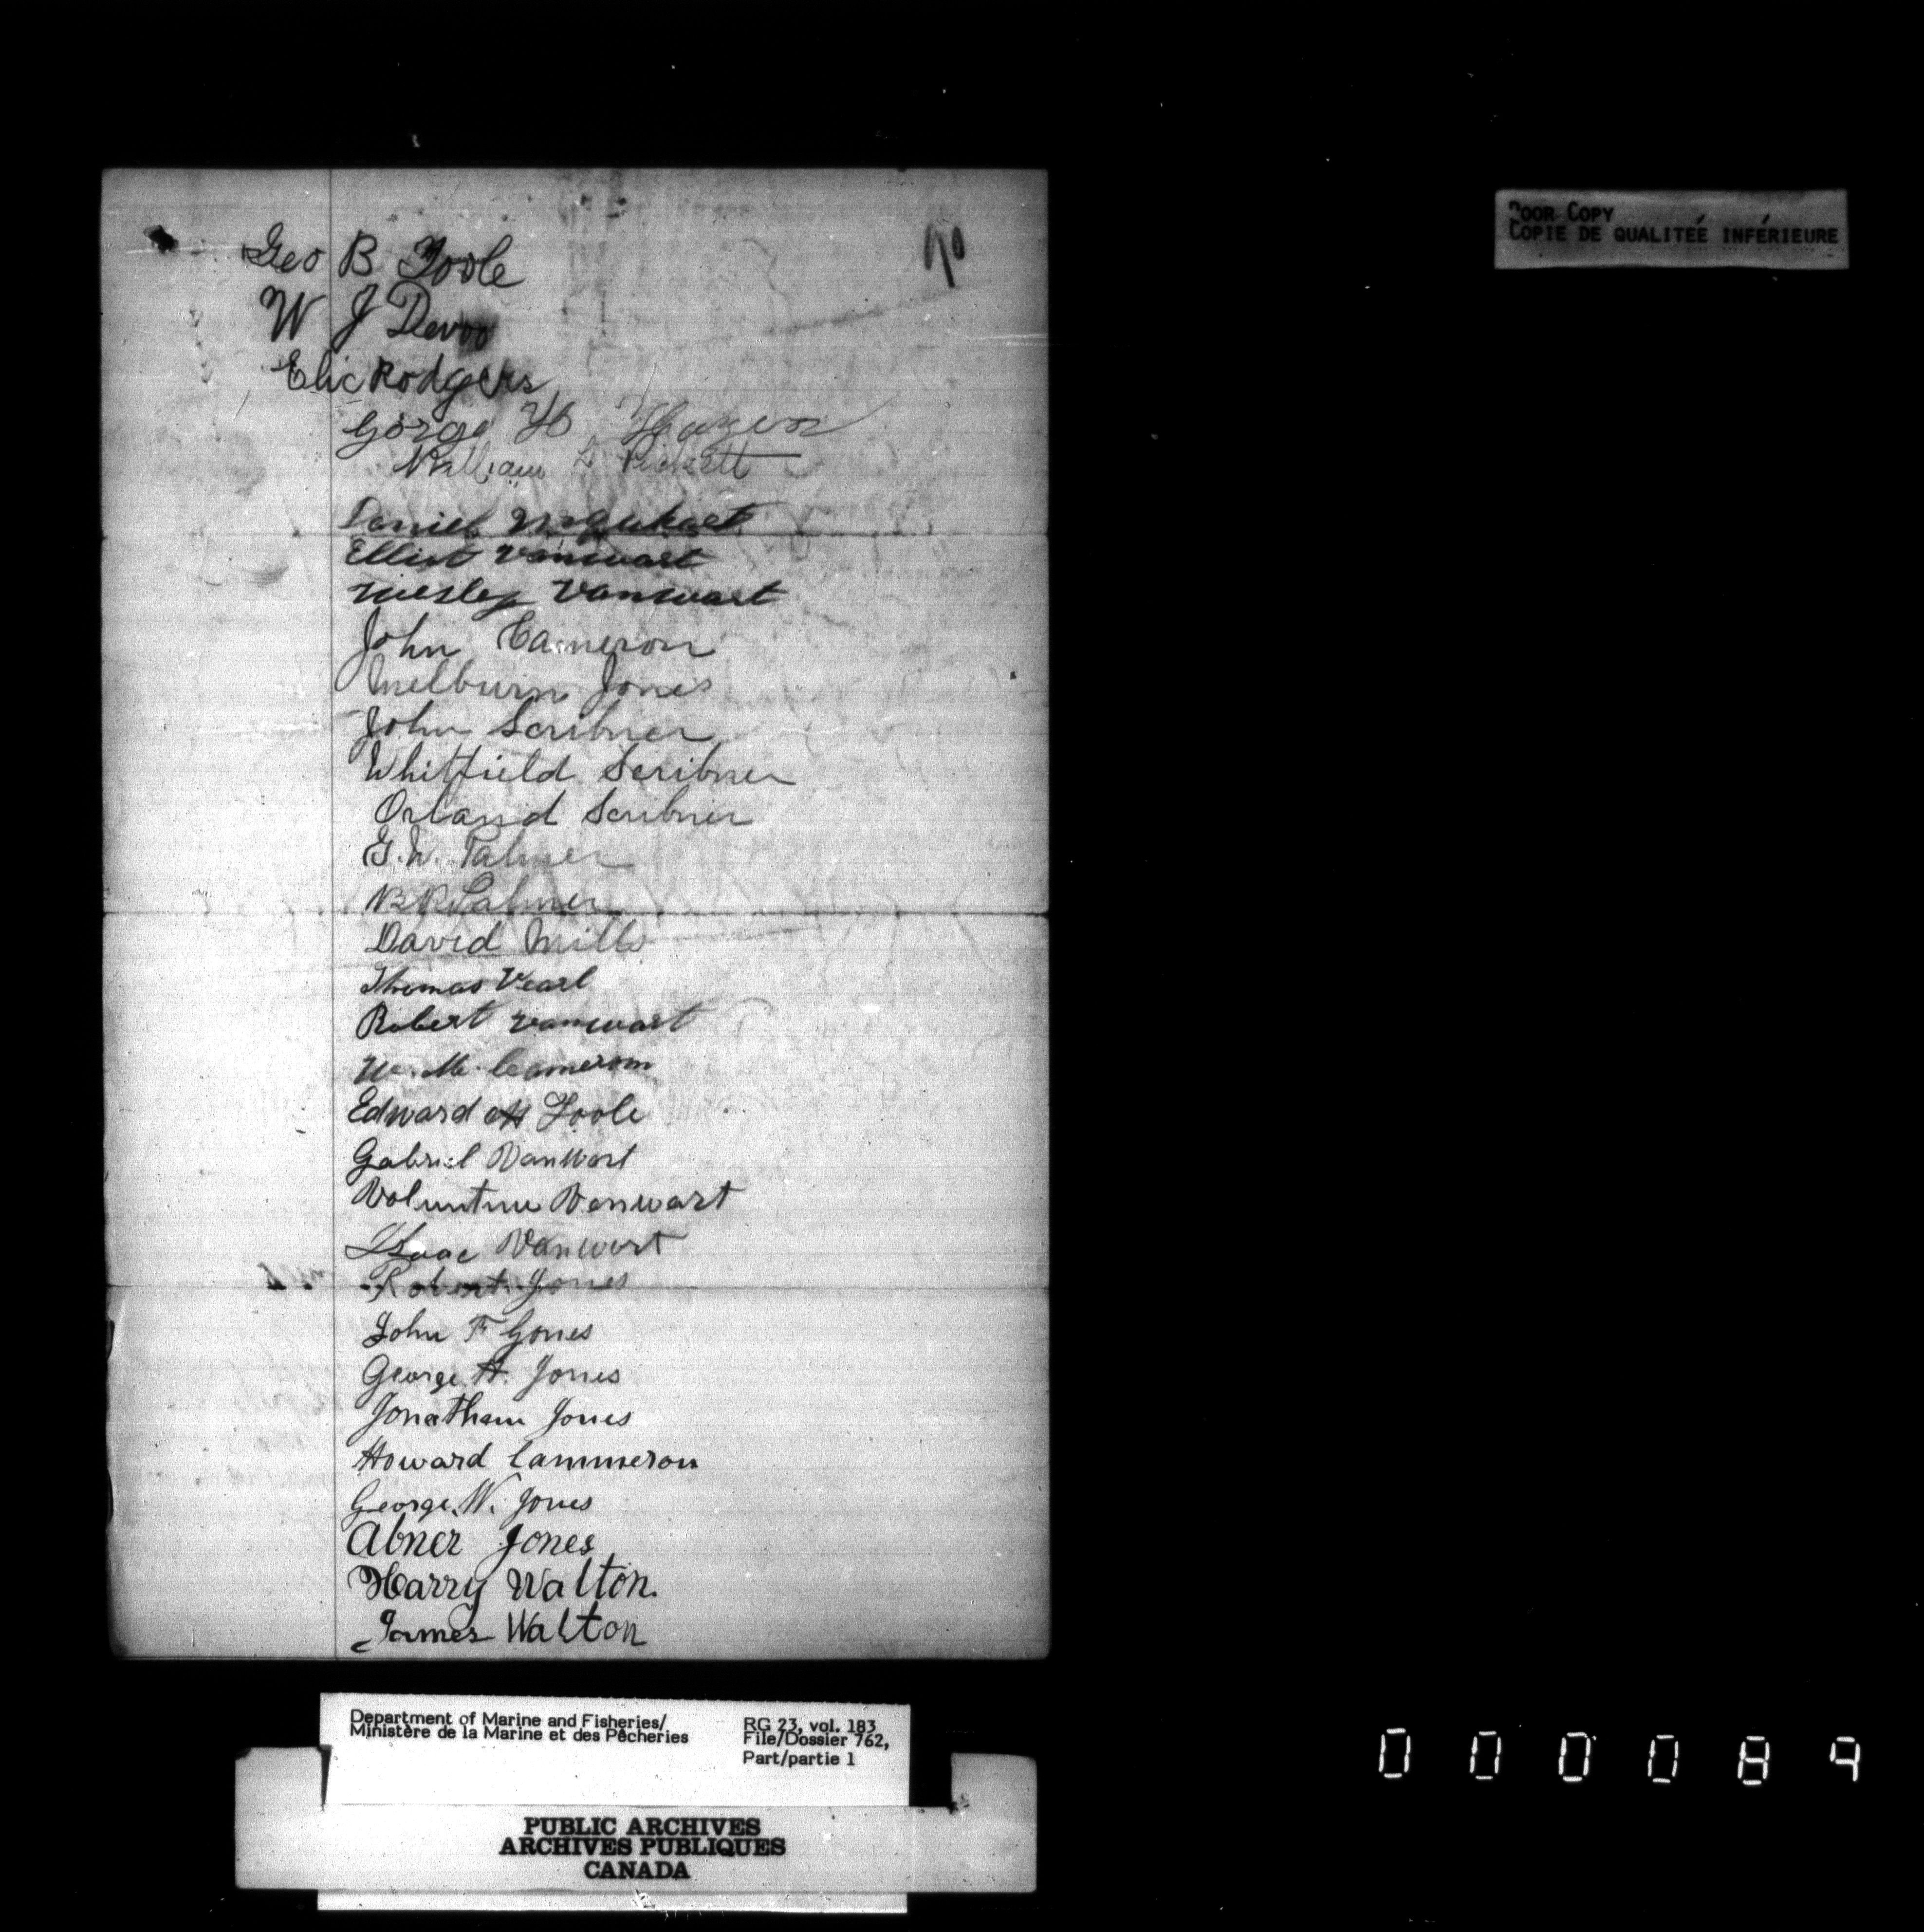 90
Geo B Toole
W J Devoo
Elic Rodgers
Gorge H
William Pickett
Daniel Urquhart
Elliot Vanwart
Wesley Vanwart
John Cameron
Melburn Jones
John Scribner
Whitfield Scribner
Orland Scribner
G. W. Palmer
Palmer
David Mills
Thomas Vearl
Robert Vanwart
W. M. Cameron
Edward H Toole
Gabriel VanWort
Voluntine Vanwart
Isaac Vanwort
Robert Jones
John F Jones
George A. Jones
Jonathan Jones
Howard Cammeron
George. W. Jones
Abner Jones
Harry Walton.
James Walton
POOR COPY
COPIE DE QUALITEÉ INFÉRIEURE
Department of Marine and Fisheries/
Ministère de la Marine et des Pêcheries
RG 23, vol. 183
File/Dossier 762,
Part/partie 1
PUBLIC ARCHIVES
ARCHIVES PUBLIQUES
CANADA
000089